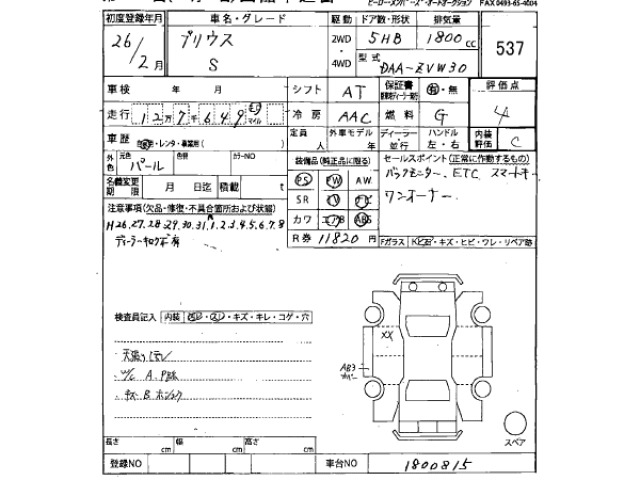 ヒーローメンバーズ・オートオークション FAX 0493-65-4004
初度登録年月 車名・グレード 駆動 ドア数・形状 排気量
26/2月 プリウス S 2WD・4WD 5HB 1800cc 537
型式 DAA-ZVW30
車検 年 月 シフト AT 保証書 有・無 評価点 4
走行 127649 マイル 冷房 AAC 燃料 G
車歴 レンタ・事業用( ) 定員 人 外車モデル 年 ディーラー 並行 ハンドル 左・右 内装評価 C
外色 元色 パール 色替 カラーNO
装備品(純正品に限る) セールスポイント(正常に作動するもの)
PS PW AW バックモニター、ETC スマートキー
名義変更期限 月 日迄 積載 t
SR TV ナビ ワンオーナー
注意事項(欠品・修復・不具合箇所および状態)
カワ エアB ABS
H26.27.28.29.30.31.1.2.3.4.5.6.7.8
R券 11820円 Fガラス キズ・ヒビ・ワレ・リペア跡
検査員記入 内装 キズ・キレ・コゲ・穴
XX
W/C A.
長さ cm 幅 cm 高さ cm スペア
登録NO 車台NO 1800815